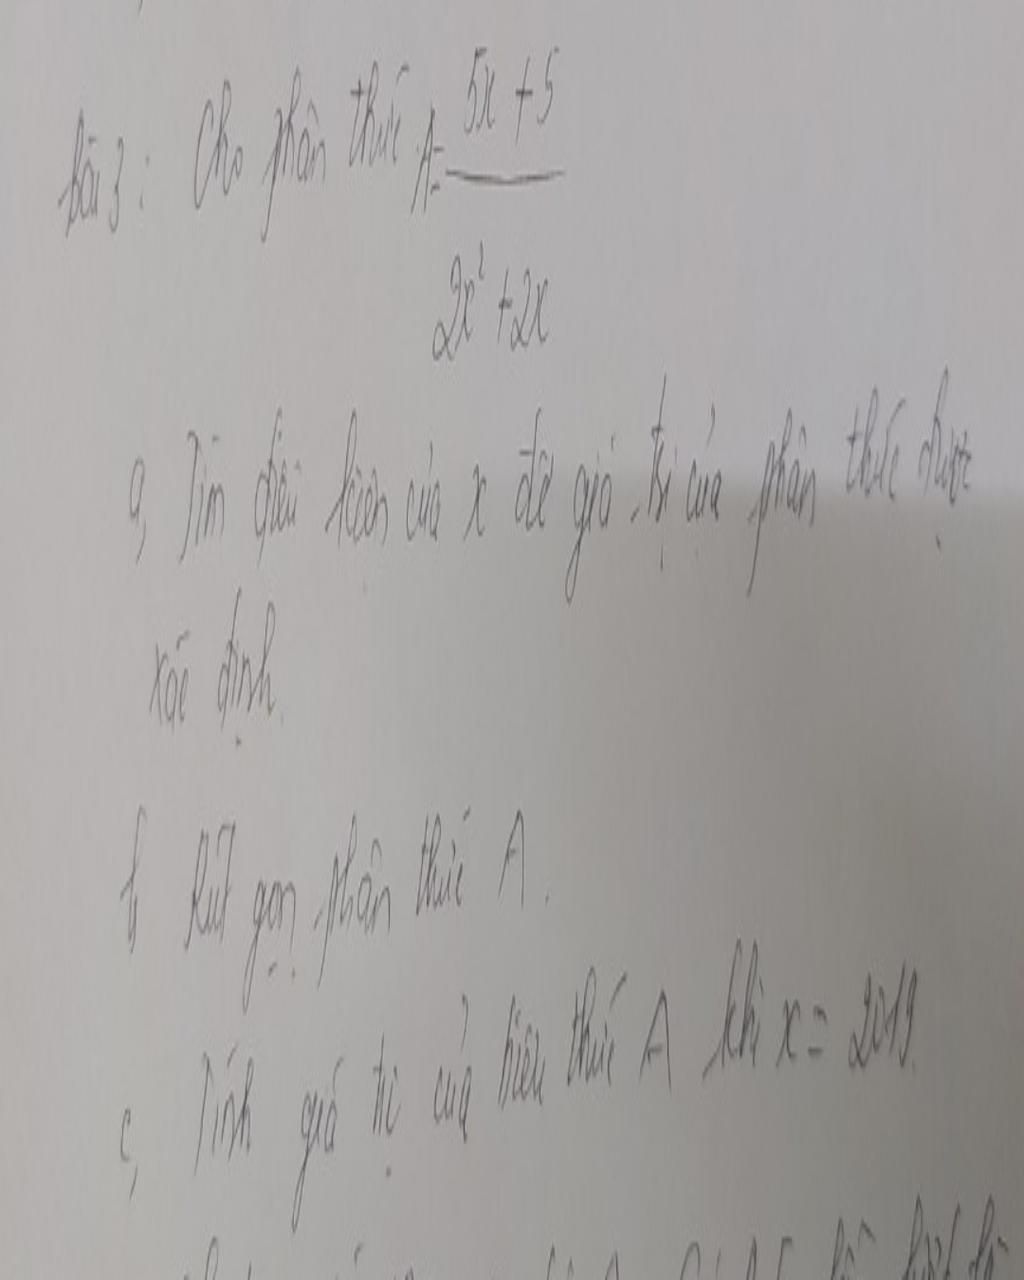 Bài 3: Cho phân thức A = 5x + 5
2x² + 2x
a, Tìm điều kiện của x để giá trị của phân thức được
xác định.
b, Rút gọn phân thức A.
c, Tính giá trị của biểu thức A khi x = 2019.